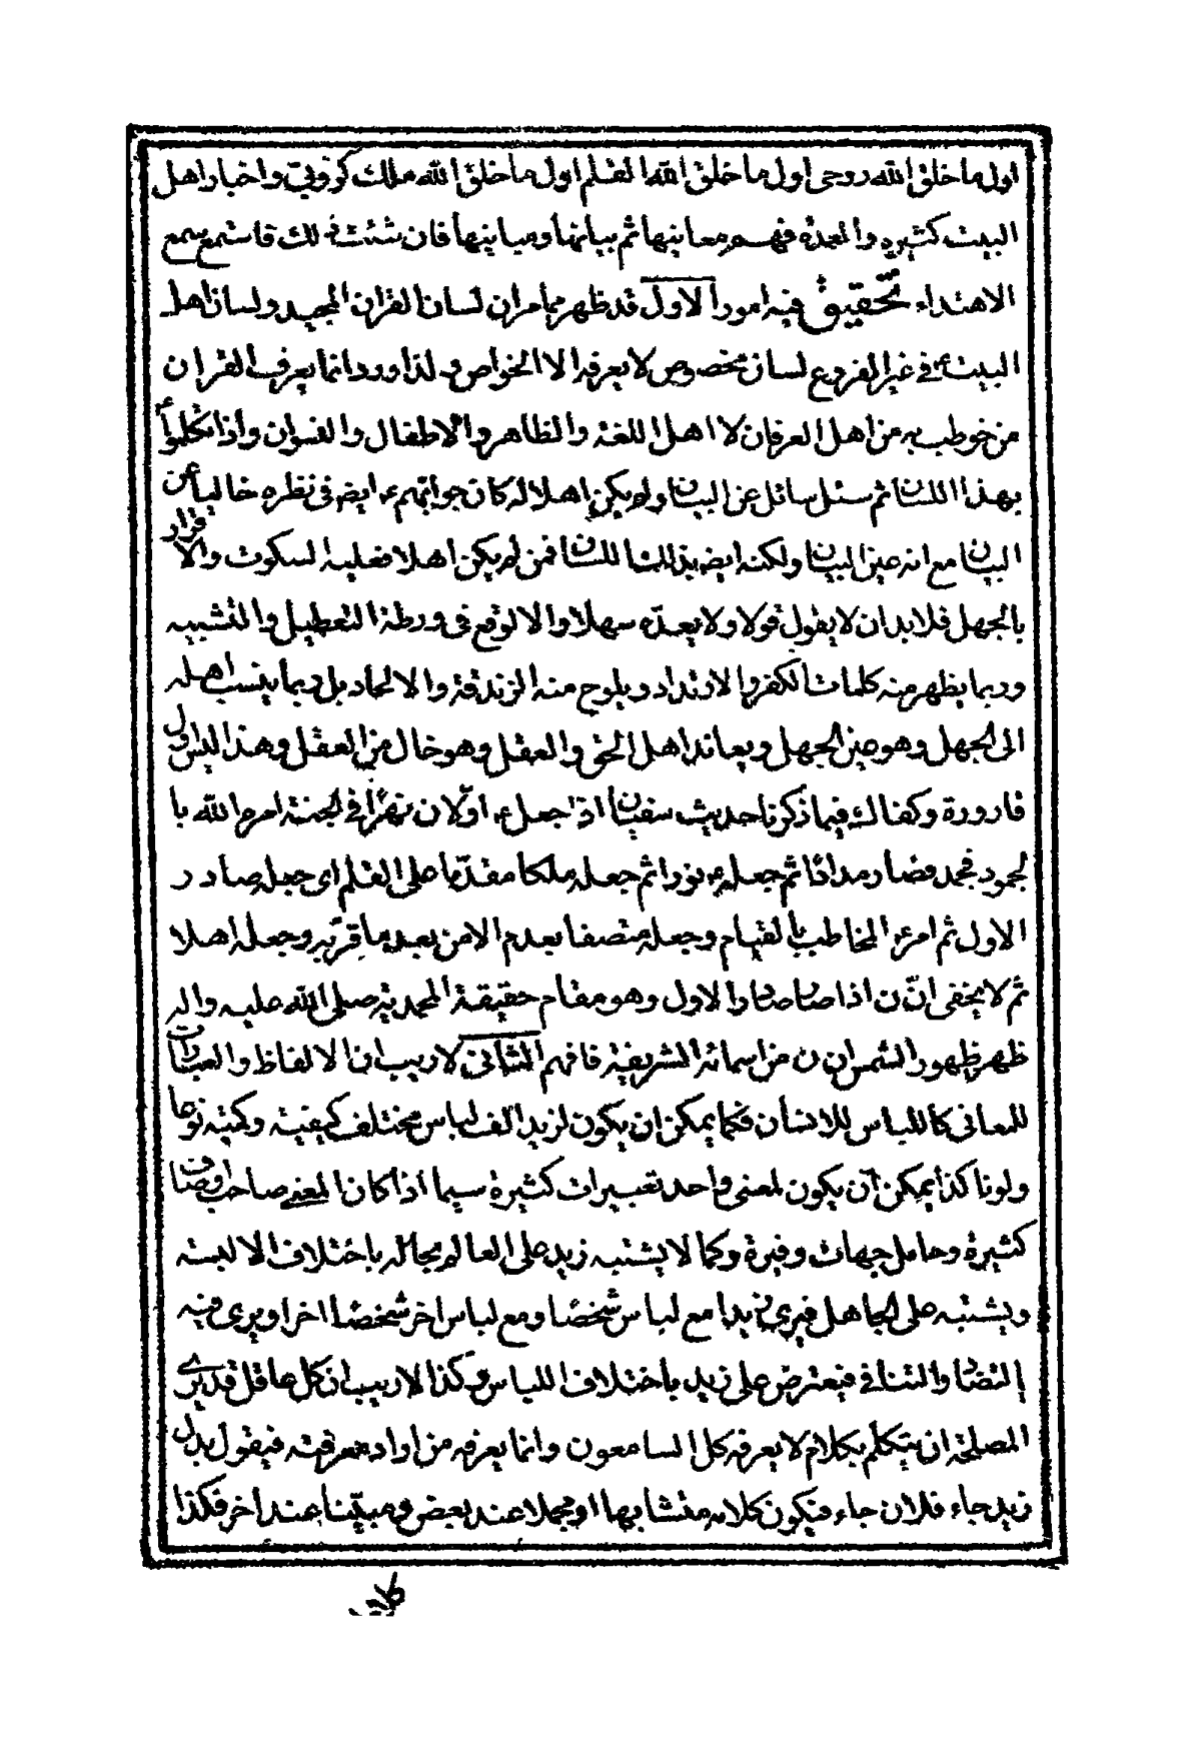 اول ما خلق الله روحى اول ما خلق الله القلم اول ما خلق الله ملك كروبي واخبار اهل
البيت كثيره والعمدة فهم معاينها ثم بيانها ومباينها فان شئت ذلك فاستمع سمع
الاهتداء تحقيق فيه امور الاول قد ظهر مما مر ان لسان القران المجيد ولسان اهل
البيت ع في غير الفروع لسان مخصوص لا يعرفه الا الخواص ولذا ورد انما يعرف القران
من خوطب به من اهل العرفان لا اهل اللغة والظاهر والاطفال والنسوان واذا تكلموا
بهذا اللسان ثم سئل سائل عن البيان ولم يكن اهلا له كان جوابهم ع ايضا في نظره خاليا عن
البيان مع انه عين البيان ولكنه ايضا بذلك اللسان فمن لم يكن اهلا فعليه السكوت والاقرار
بالجهل فلا بد ان لا يقول قولا ولا يعده سهلا والا لوقع في ورطة التعطيل والتشبيه
وربما يظهر منه كلمات الكفر والارتداد ويلوح منه الزندقة والالحاد بل ربما ينسب اهله
الى الجهل وهو عين الجهل ويعاند اهل الحق والعقل وهو خال من العقل وهذا ليس اول
قارورة وكفاك فيما ذكرنا حديث سفيان اذا جعل ع اولا ن نهرا في الجنة امره الله با
لجمود فجمد فصار مدادا ثم جعله ع نورا ثم جعله ملكا مقدما على القلم اى جعله صادر
الاول ثم امر ع المخاطب بالقيام وجعله متصفا بعدم الامن بعد ما قربه وجعله اهلا
ثم لا يخفى ان ن اذا صار صادر الاول وهو مقام حقيقة المحمدية صلى الله عليه واله
ظهر ظهور الشمس ان ن من اسمائه الشريفة فافهم الثانى لا ريب ان الالفاظ والعبارات
للمعانى كاللباس للانسان فكما يمكن ان يكون لزيد الف لباس مختلف كيفيته وكميته نوعا
ولونا كذا يمكن ان يكون لمعنى واحد تعبيرات كثيرة سيما اذا كان المعنى صاحب اوصاف
كثيرة وحامل جهات وفيرة وكما لا يشتبه زيد على العالم بحاله باختلاف الالبسة
ويشتبه على الجاهل فيرى زيدا مع لباس شخصا ومع لباس اخر شخصا اخر او يرى فيه
التضاد والتنافى فيعترض على زيد باختلاف اللباس وكذا لا ريب ان كل عاقل قد يرى
المصلحة ان يتكلم بكلام لا يعرفه كل السامعون وانما يعرفه من اراد معرفته فيقول بدل
زيد جاء فلان جاء فيكون كلامه متشابها او مجملا عند بعض ومبينا عند اخر فكذا